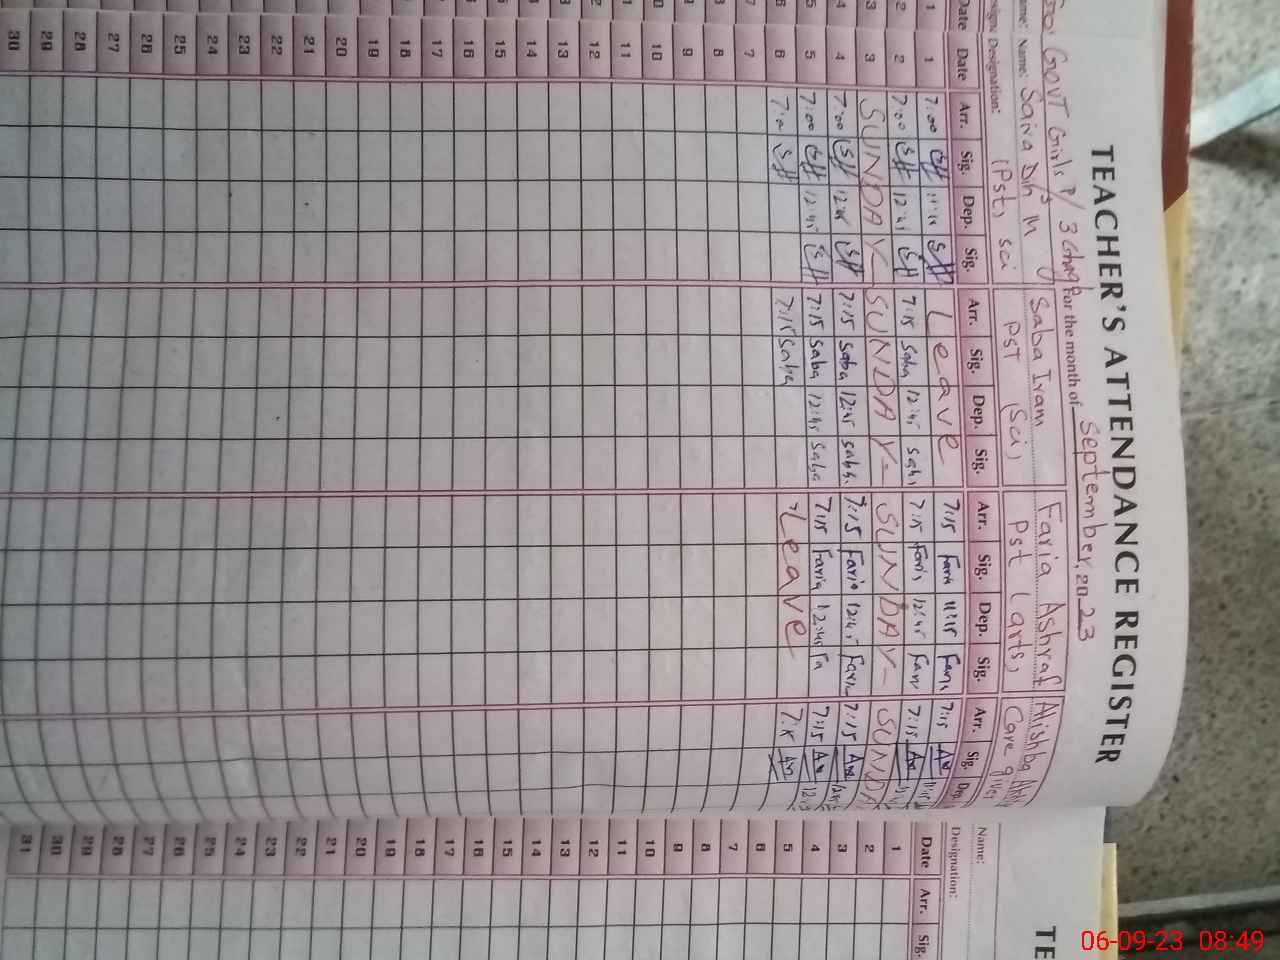 TEACHER'S ATTENDANCE REGISTER
Govt Girls P/S For the month of September, 2023
Name: Saira Din Saba Iram Faria Ashraf Alishba
Designation: (Pst) sci PST (Sci) Pst (arts) Care giver
Date Arr. Sig. Dep. Sig. Arr. Sig. Dep. Sig. Arr. Sig. Dep. Sig. Arr. Sig. Dep.
1 7:00 11:15 Leave 7:15 Faria 11:15 Faria 7:15
2 7:00 12:45 7:15 Saba 12:45 Saba 7:15 Faria 12:45 Faria 7:15
3 SUNDAY SUNDAY- SUNDAY- SUNDA
4 7:00 12:45 7:15 Saba 12:45 Saba 7:15 Faria 12:45 Faria 7:15
5 7:00 12:45 7:15 Saba 12:45 Saba 7:15 Faria 12:45 Fa 7:15
6 7:15 Saba Leave
7
8
9
10
11
12
13
14
15
16
17
18
19
20
21
22
23
24
25
26
27
28
29
30
TE
Name:
Designation:
Date Arr. Sig.
1
2
3
4
5
6
7
8
9
10
11
12
13
14
15
16
17
18
19
20
21
22
23
24
25
26
27
28
29
30
31
06-09-23 08:49